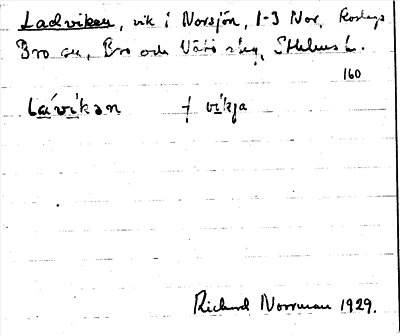 Ladviken, vik i Norsjön, 1-3 Nor, Roslags
Bro sn, Bro och Vätö slg, Sthlms l.
160
Lávikan vikja
Richard Norrman 1929.